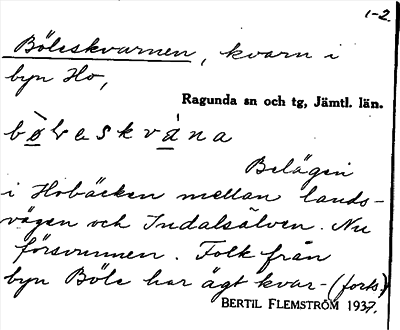 1-2
Böleskvarnen, kvarn i
byn Ho,
Ragunda sn och tg, Jämtl. län.
Belägen
i Hobäcken mellan lands-
vägen och Indalsälven. Nu
försvunnen. Folk från
byn Böle har ägt kvar- (forts.)
BERTIL FLEMSTRÖM 1937.